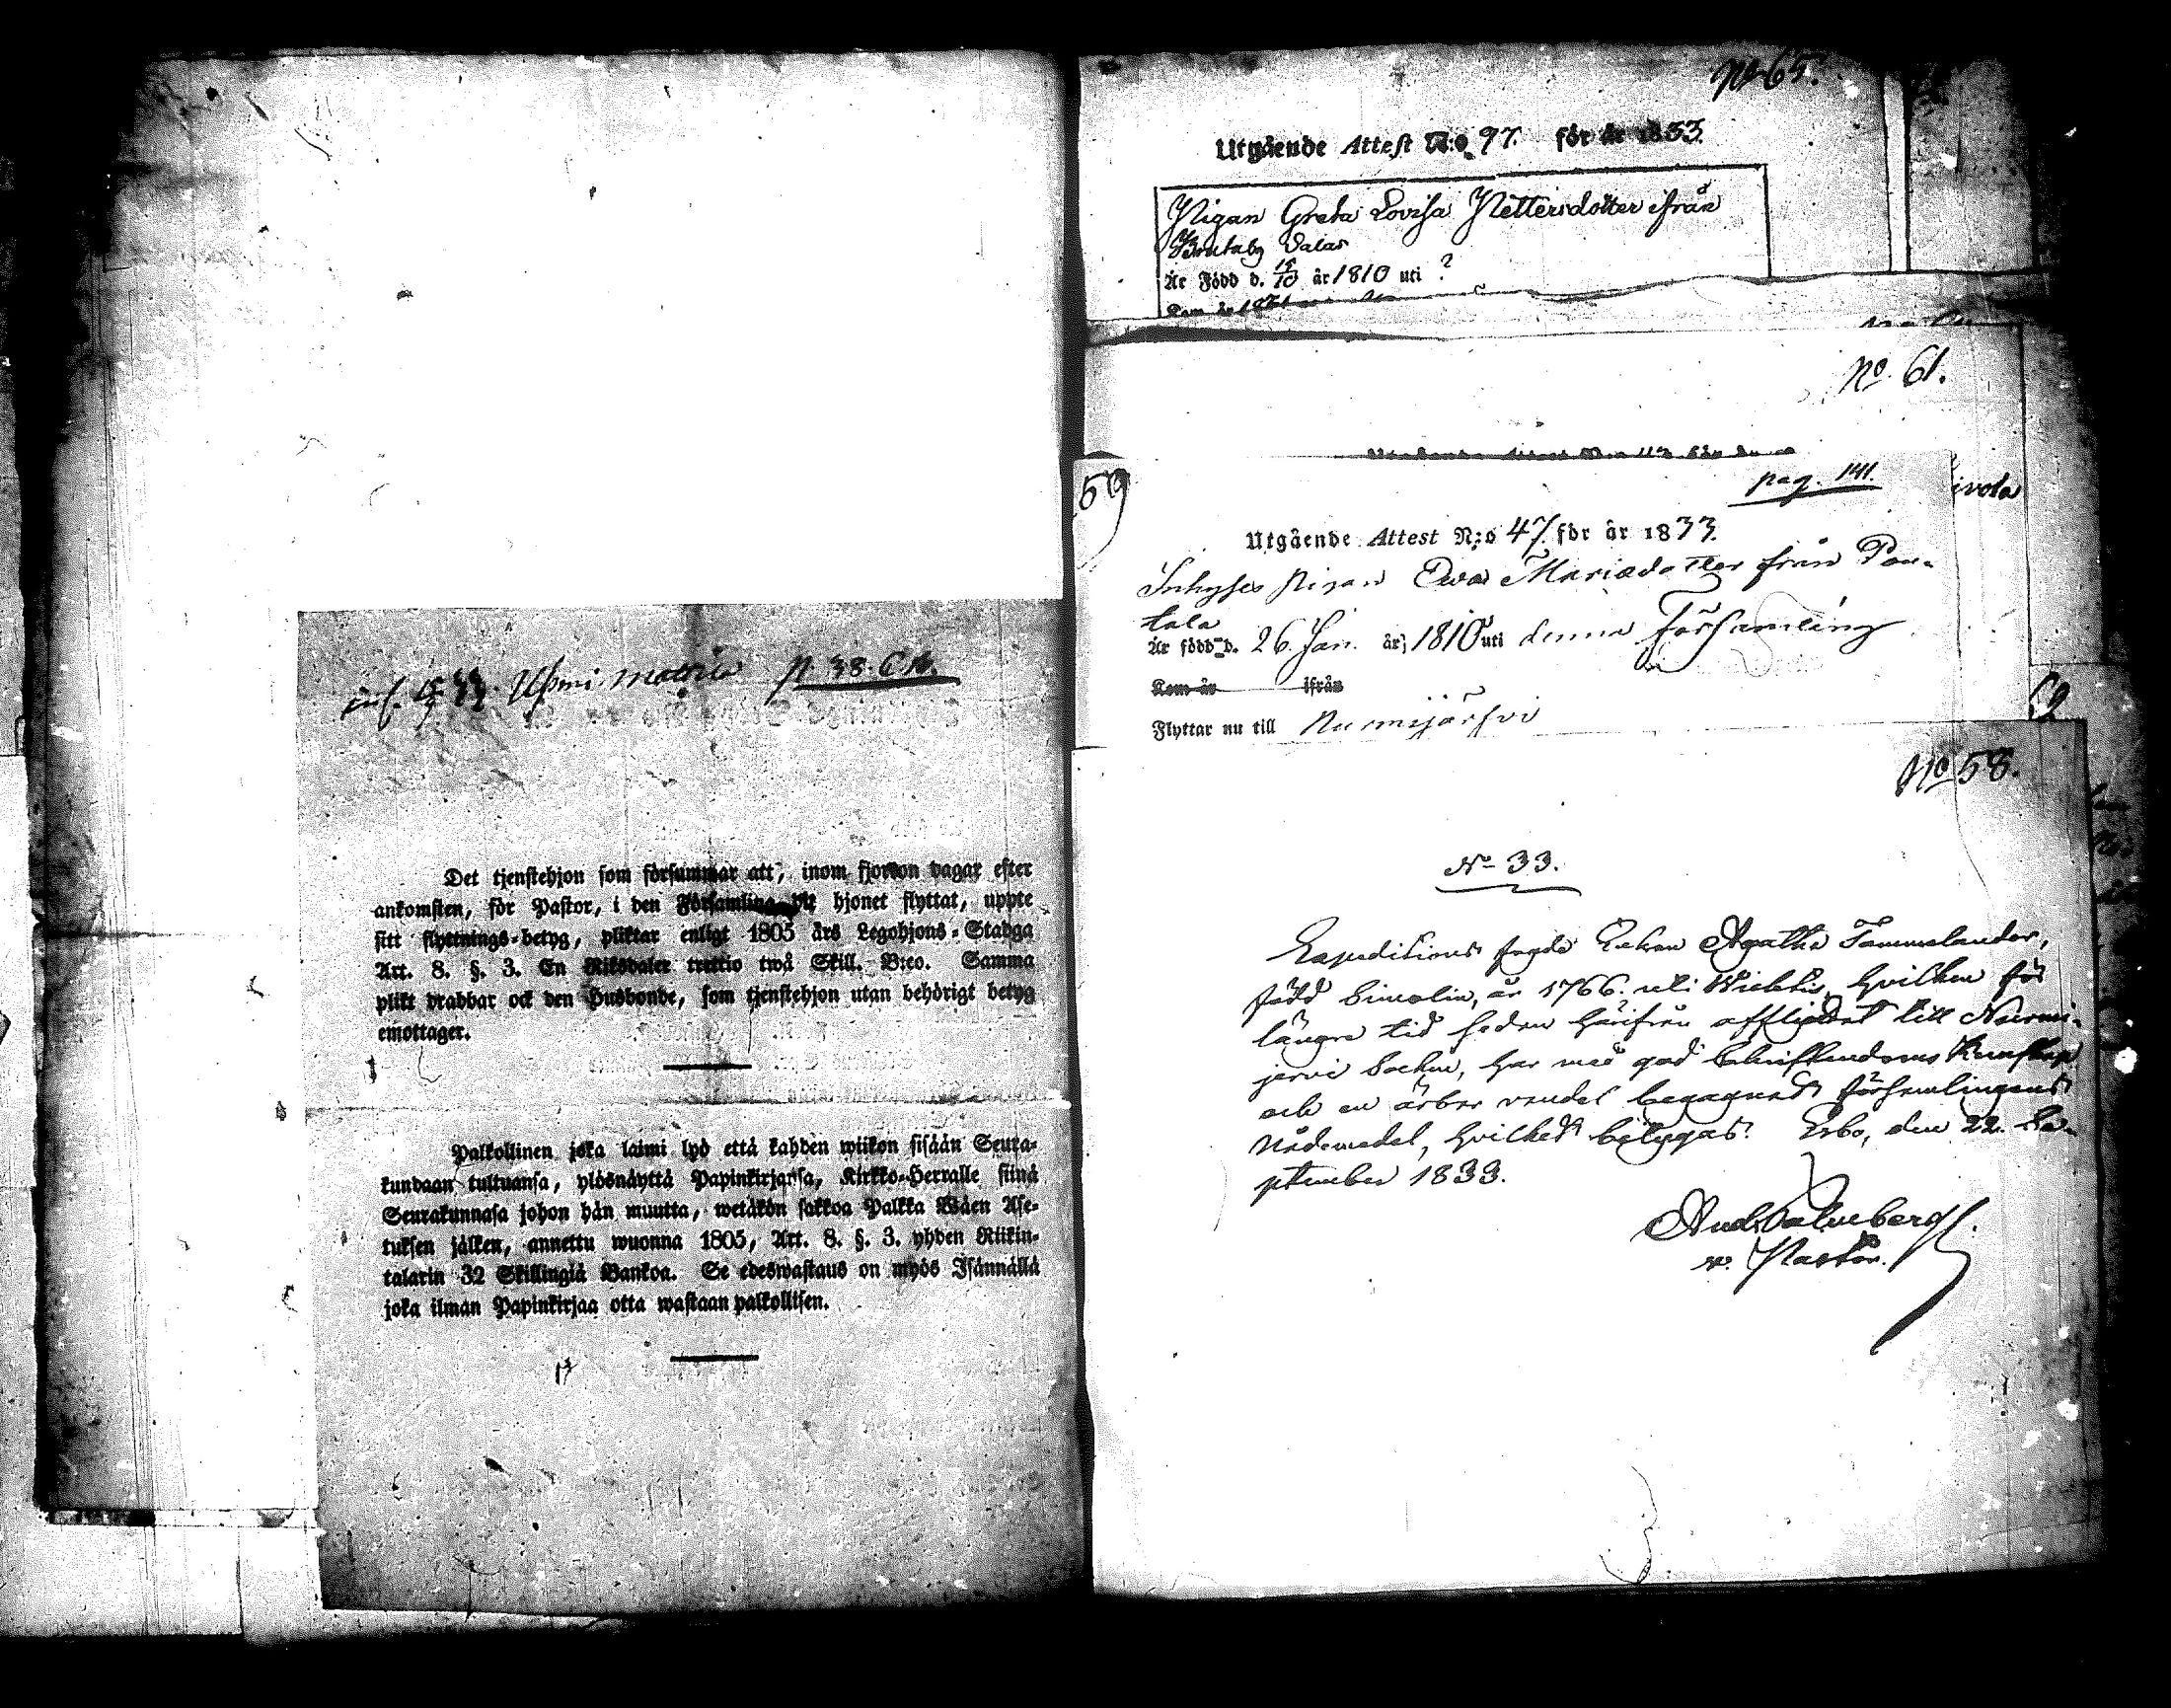 Upmi p. 38.
Det tjenstehjon som försummar att, inom fjorton dagar efter
ankomsten, för Pastor, i den Församling dit hjonet flyttat, uppte
sitt flyttnings-betyg, pliktar enligt 1805 års Legohjons-Stadga
Art. 8. §. 3. En Riksdaler trettio twå Skill. B:co. Samma
plikt drabbar ock den Husbonde, som tjenstehjon utan behörigt betyg
emottager.
Palkollinen joka laimi lyö että kahden wiikon sisään Seura-
kundaan tultuansa, ylösnäyttä Papinkirjansa, Kirkko-Herralle siinä
Seurakunnasa johon hän muutta, wetäkön sakkoa Palkka Wäen Ase-
tuksen jälken, annettu wuonna 1805, Art. 8. §. 3. yhden Riikin-
talarin 32 Skillingiä Bankoa. Se edeswastaus on myös Isännällä
joka ilman Papinkirjaa otta wastaan palkollisen.
No 65.
Utgående Attest N:o 97. för år 1833.
Pigan Greta Lovisa Pettersdotter ifrån
Är Född d. 15/10 år 1810 uti ?
No 61.
59
pag. 141.
ivola
Utgående Attest N:o 47. för år 1833.
Inhyses Pigan Ewa Mariædotter från Pon-
tala
Är född d. 26 Jan. år 1810 uti denna Församling
Kom år ifrån
Flyttar nu till Nurmijärfvi
62
No 58.
No 33.
Expeditions fogde Enkan Agatha Tammelander,
född Simolin, år 1766. uti Wichtis, hvilken för
längre tid sedan härifrån afflyttat till Nurmi-
jervi Sockn, har med god Christendoms Kunskap
och en ärbar vandel begagnat församlingens
Nådemedel, hvilket betygas. Esbo, den 22. Se-
ptember 1833.
v. Pastor.